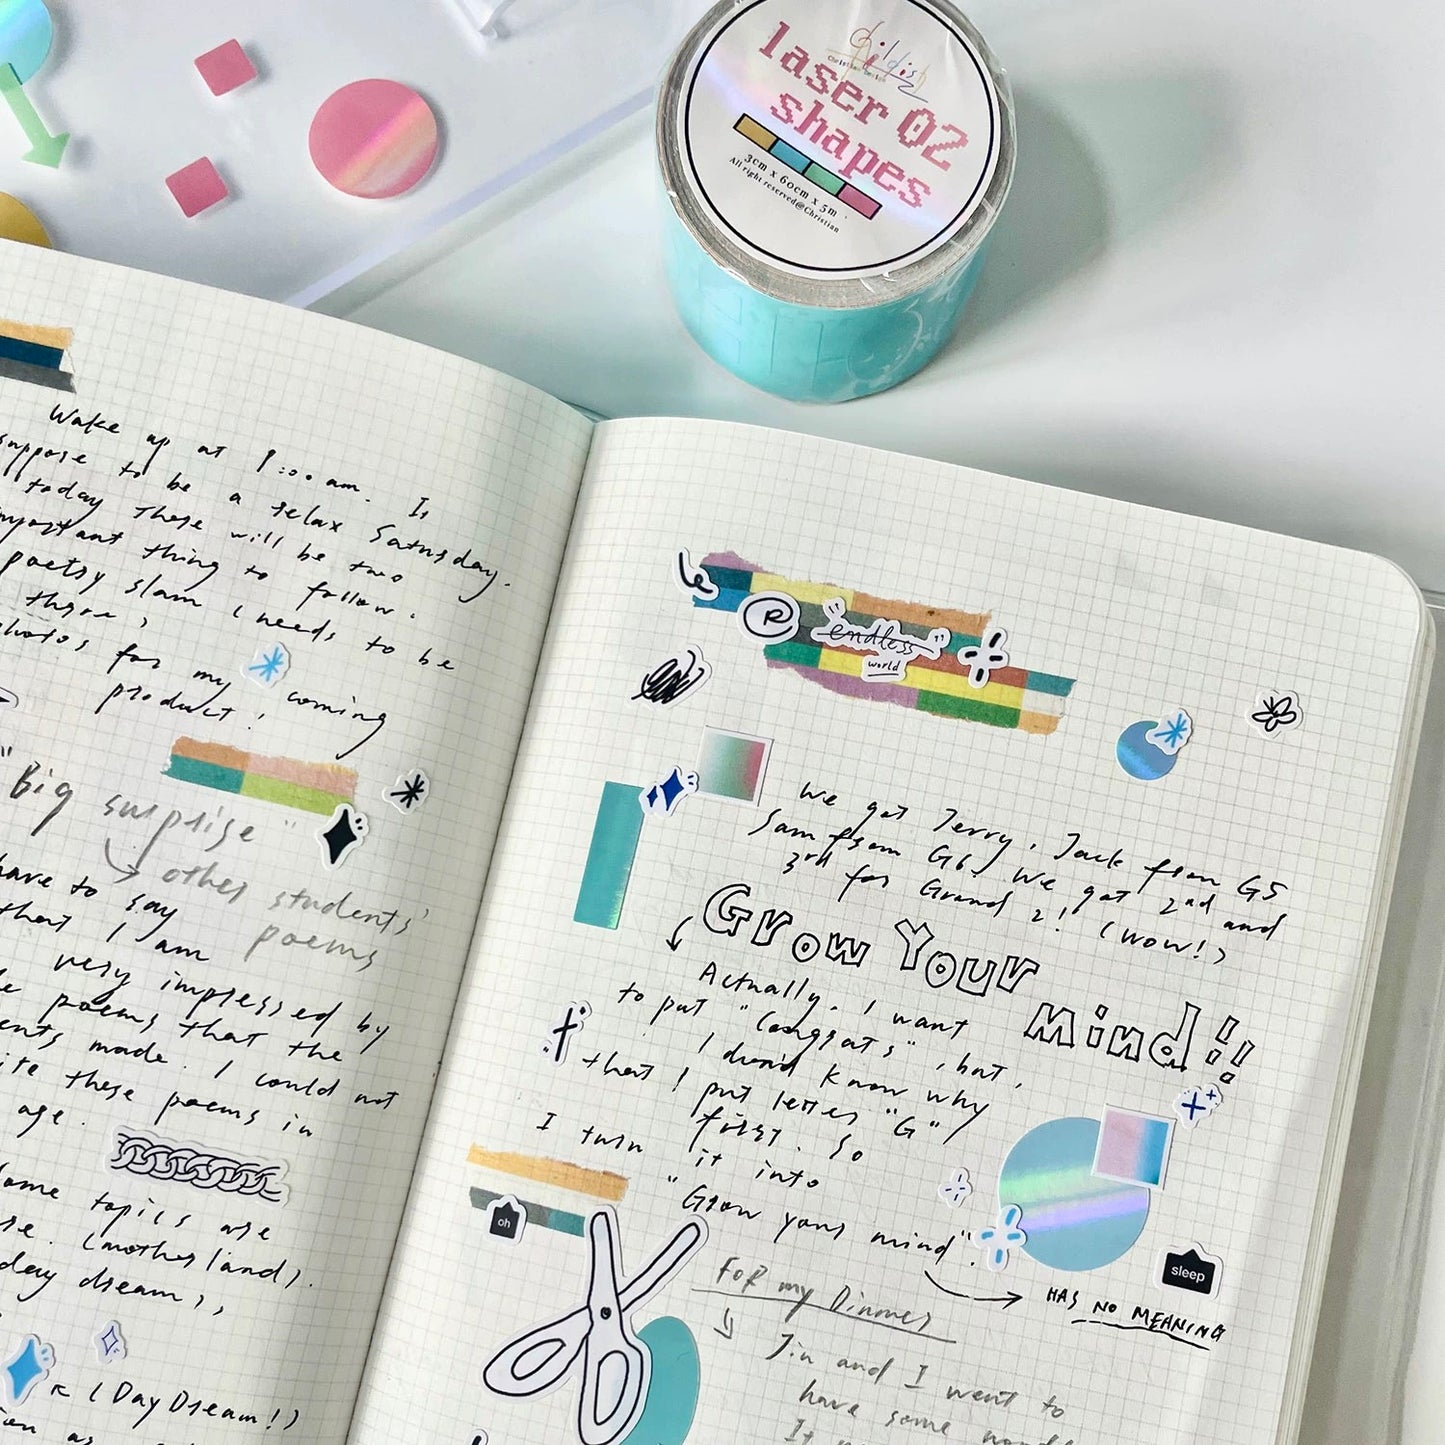 Childish
Christian Design
laser 02
shapes
3cm x 60cm x 5m
All right reserved@Christian
Wake up at 1:00am. It
suppose to be a relax Saturday.
today there will be two
important thing to follow.
poetry slam (needs to be
there)
photos for my coming
product!
"Big surprise"
other students'
poems
have to say
that I am
very impressed by
poems that the
made. I could not
these poems in
age.
some topics are
(motherland).
day dream),
(DayDream!)
as
R
"endless"
world
We got Jerry, Jack from G5
Sam from G6. We got 2nd and
3rd for Grand 2! (wow!)
Grow Your
Mind!!
Actually, I want
to put "Congrats", but,
I dunno know why
that I put letter "G"
first. So
I turn it into
"Grow your mind".
HAS NO MEANING
oh
sleep
For my Dinner
Jin and I went to
have some
It